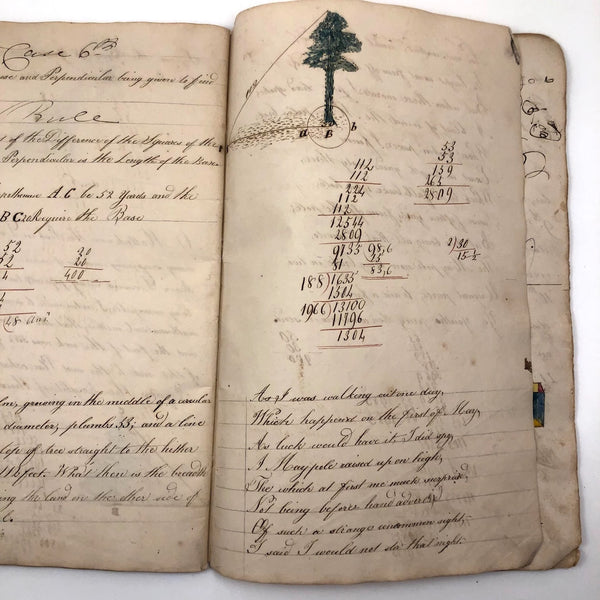 Case 6th
use and Perpendicular being given to find
Rule
of the Difference of the Squares of the
Perpendicular is the Length of the Base
A.C be 52 Yards and the
BC Require the Base
52
52
20
20
400
48 Ans
growing in the middle of a circular
diameter, plumbs 53; and a line
top of tree straight to the hether
feet. What then is the breadth
the land on the other side of
a B b
112
112
224
112
112
12544
2809
9735
81
188)1635
1504
1966)13100
11796
1304
53
53
159
265
2809
98,6
15
83,6
2)30
15
As I was walking out one day,
Which happened on the first of May,
As luck would have it I did spy,
A Maypole raised up on high,
The which at first me much surprised,
Not being before hand advertised
Of such a strange uncommon sight,
I said I would not stir that night